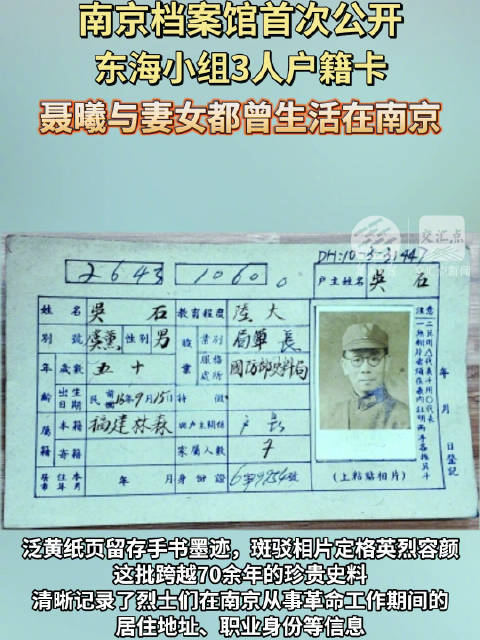 南京档案馆首次公开
东海小组3人户籍卡
聂曦与妻女都曾生活在南京
交汇点
DH:10-3-3144
2643 1060
户主姓名 吴石
姓名 吴石 教育程度 陆大
别号 虞薰 性别 男 职业 业别 局单长
服务处所 国防部史料局
年龄 岁数 五十
出生日期 民前 年9月15日 特徵
属籍 本籍 福建林森 与户主关系 户长
寄籍 家属人数 7
居住本市年月 年 月 身份证 号
(上粘贴相片)
年 月 日登记
泛黄纸页留存手书墨迹，斑驳相片定格英烈容颜
这批跨越70余年的珍贵史料
清晰记录了烈士们在南京从事革命工作期间的
居住地址、职业身份等信息